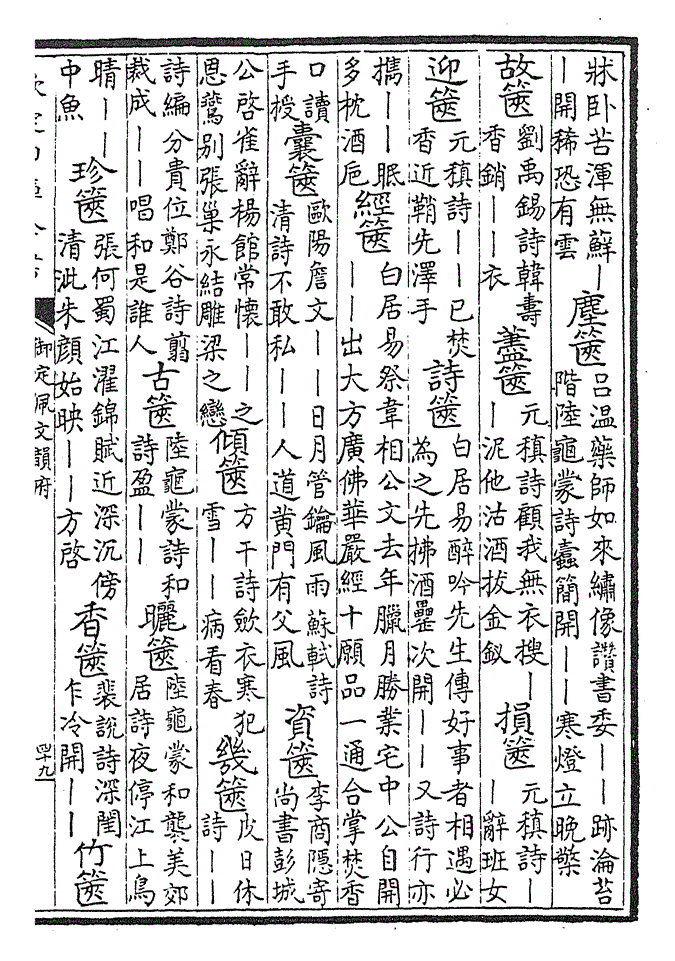 牀卧苦渾無蘇||開稀恐有雲 塵篋 呂温藥師如來繡像讚書委||跡淪苔階陸龜蒙詩蠹簡開||寒燈立晚檠
故篋 劉禹錫詩韓壽香銷||衣 藎篋 元稹詩顧我無衣搜||泥他沽酒拔金釵 損篋 元稹詩||辭班女
迎篋 元稹詩||已焚香近鞘先澤手 詩篋 白居易醉吟先生傳好事者相遇必為之先拂酒罍次開||又詩行亦
攜||眠多枕酒巵 經篋 白居易祭韋相公文去年臘月勝業宅中公自開||出大方廣佛華嚴經十願品一通合掌焚香
口讀手授 囊篋 歐陽詹文||日月管鑰風雨蘇軾詩清詩不敢私||人道黄門有父風 資篋 李商隱寄尚書彭城
公啓雀辭楊館常懷||之恩鶩别張巢永結雕梁之戀 傾篋 方干詩斂衣寒犯雪||病看春 幾篋 皮日休詩||
詩編分貴位鄭谷詩翦裁成||唱和是誰人 古篋 陸龜蒙詩和詩盈|| 曬篋 陸龜蒙和襲美郊居詩夜停江上鳥
晴||中魚 珍篋 張何蜀江濯錦賦近深沉傍清泚朱顔始映||方啓 香篋 裴說詩深閨乍冷開|| 竹篋
御定佩文韻府
四十九